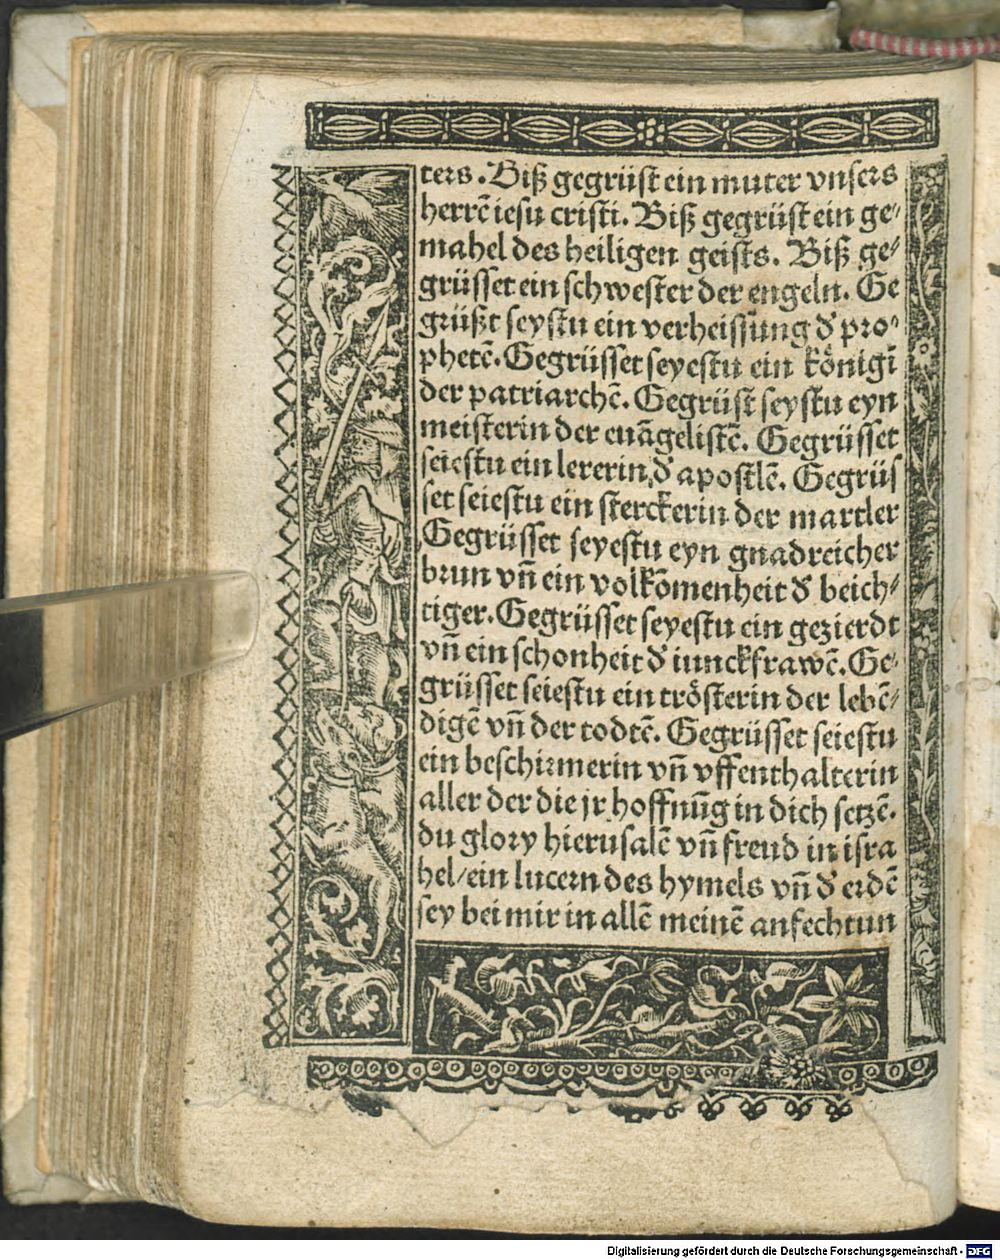 ters. Biß gegrüst ein muter vnsers
herrē iesu cristi. Biß gegrüst ein ge⸗
mahel des heiligen geists. Biß ge⸗
grüsset ein schwester der engeln. Ge
grüßt seystu ein verheissung d̕ pro⸗
phetē. Gegrüsset seyestu ein königī
der patriarchē. Gegrüst seystu eyn
meisterin der euāgelistē. Gegrüsset
seiestu ein lererin d̕ apostlē. Gegrüs
set seiestu ein sterckerin der martler
Gegrüsset seyestu eyn gnadreicher
brun vn̄ ein volkōmenheit d̕ beich⸗
tiger. Gegrüsset seyestu ein gezierdt
vn̄ ein schonheit d̕ iunckfrawē. Ge⸗
grüsset seiestu ein trösterin der lebē⸗
digē vn̄ der todtē. Gegrüsset seiestu
ein beschirmerin vn̄ vffenthalterin
aller der die jr hoffnūg in dich setzē.
du glory hierusalē vn̄ freud in isra
hel/ ein lucern des hymels vn̄ d̕ erdē
sey bei mir in allē meinē anfechtun
Digitalisierung gefördert durch die Deutsche Forschungsgemeinschaft - DFG